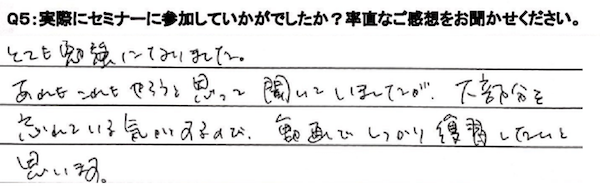 Q5:実際にセミナーに参加していかがでしたか？率直なご感想をお聞かせください。
とても勉強になりました。
あれもこれもやろうと思って聞いていましたが、大部分を
忘れている気がするので、動画でしっかり復習したいと
思います。